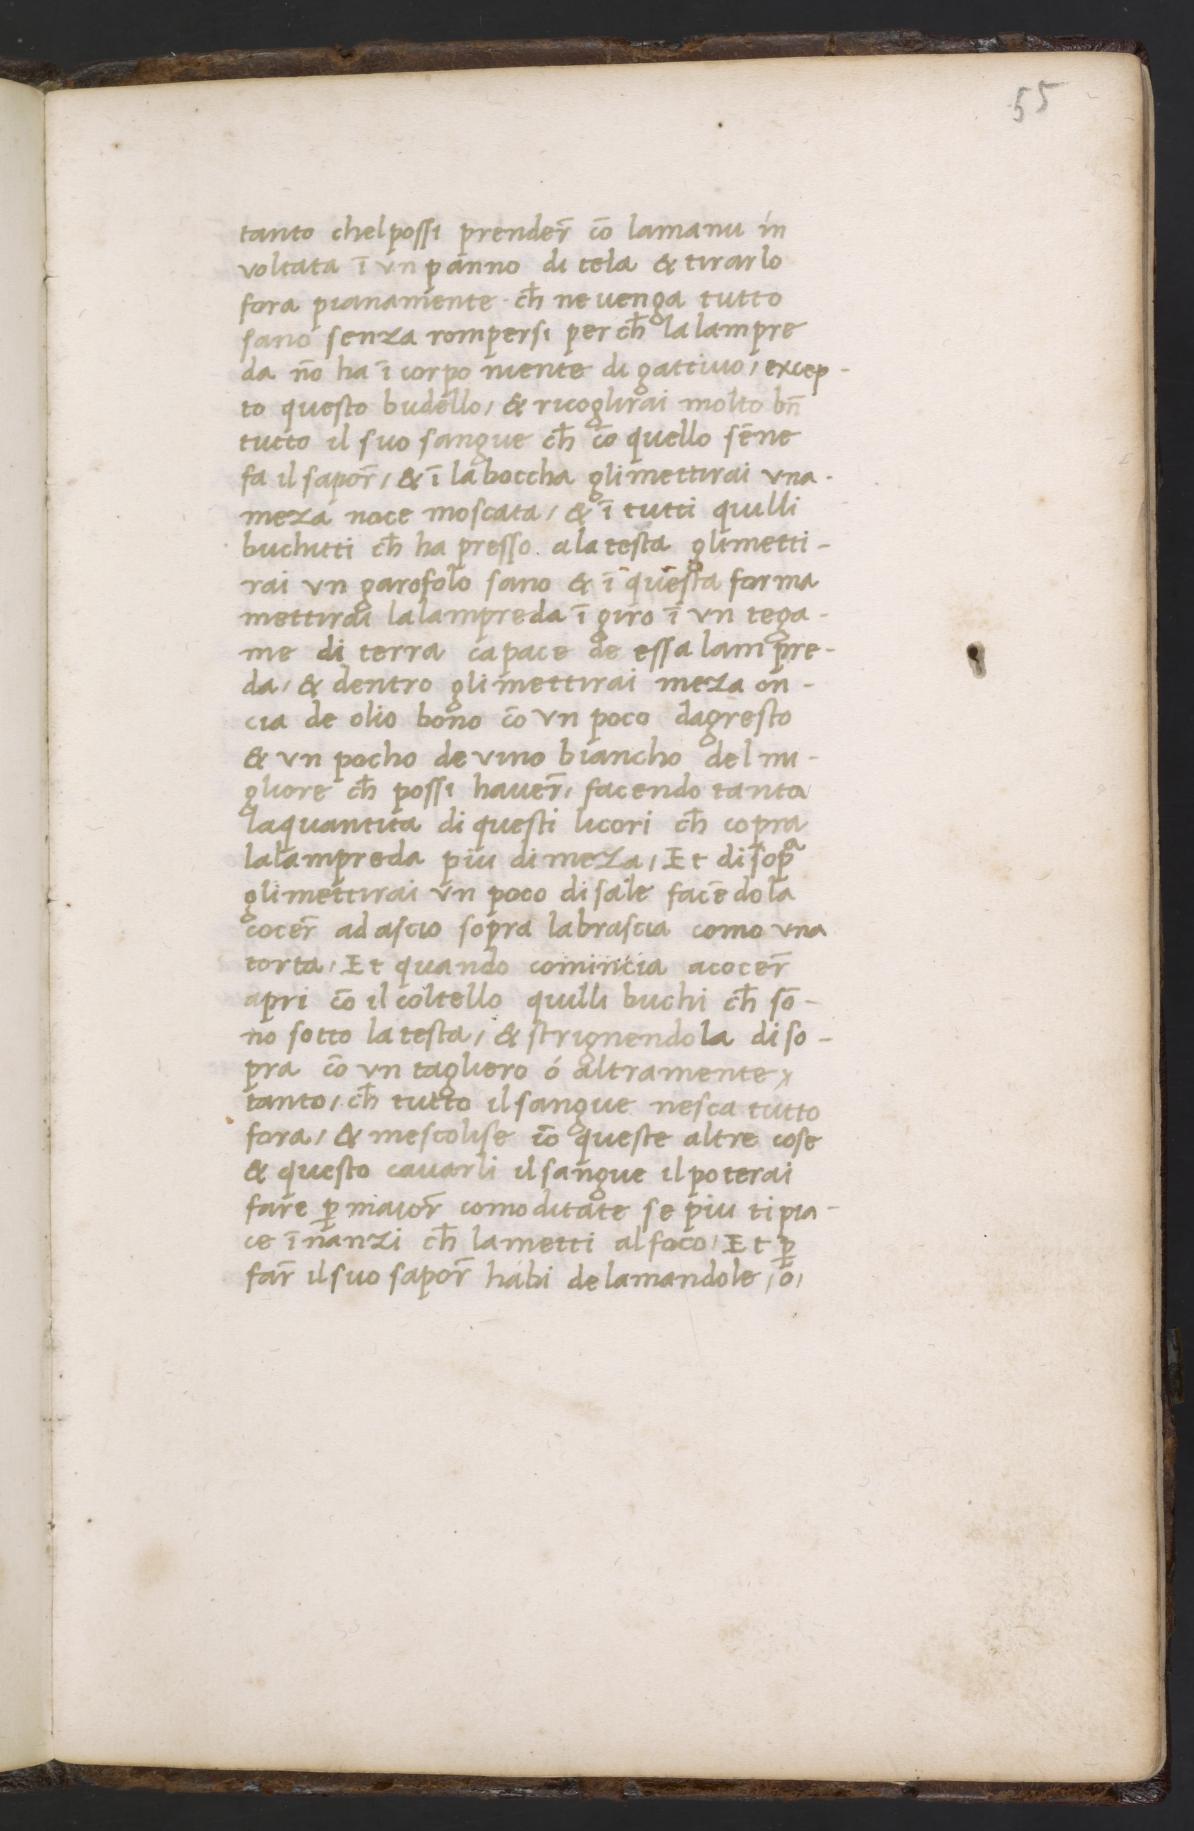 55
tanto chelpossi prender̃ cō lamanu in
voltata ī un panno di tela & tirarlo
fora pianamente · ch̄ ne uenga tutto
sano senza rompersi per ch̄ la lampre
da nō ha ī corpo niente di gattiuo / excep -
to questo budello / & ricoglirai molto bñ
tutto il suo sangue ch̄ cō quello sēne
fa il sapor̃ / & ī la boccha glimettirai una -
meza noce moscata / & ī tutti quilli
buchitti ch̄ ha presso . a la testa glimetti -
rai un garofolo sano & ī questa forma
mettirai lalampreda ī giro ī un tega -
me di terra capace de essa lampre -
da / & dentro gli mettirai meza on -
cia de olio bono cō un poco dagresto
& un pocho de uino biancho del mi -
gliore ch̄ possi hauer̃ / facendo tanta
laquantita di questi licori ch̄ copra
lalampreda piu di meza / Et di sopᵃ
glimettirai un poco di sale facēdola
cocer̃ ad ascio sopra labrascia como una
torta / Et quando comincia acocer̃
apri cō il coltello quilli buchi ch̄ sō -
no sotto la testa / & strignendola di so -
pra cō un tagliero ó altramente
tanto / ch̄ tutto il sangue nesca tutto
fora / & mescolise cō queste altre cose
& questo cauarli il sangue il poterai
fare ꝑ maior̃ comoditate se piu ti pia -
ce īnanzi ch̄ lametti alfoco / Et ꝑ
far̃ il suo sapor̃ habi de lamandole / o /